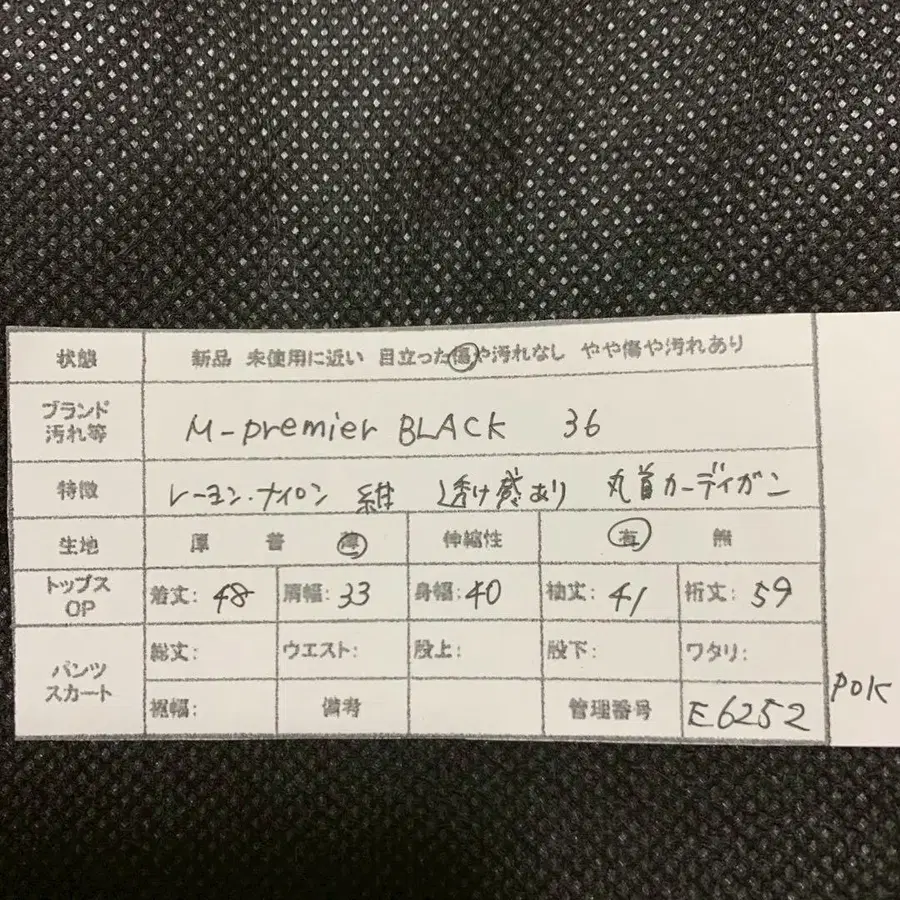 状態 新品 未使用に近い 目立った傷や汚れなし やや傷や汚れあり
ブランド
汚れ等
M-premier BLACK 36
特徴 レーヨン・ナイロン 透け感あり 丸首カーディガン
生地 厚 普 薄 伸縮性 有 無
トップス
OP
着丈: 48 肩幅: 33 身幅: 40 袖丈: 41 裄丈: 59
パンツ
スカート
総丈: ウエスト: 股上: 股下: ワタリ:
裾幅: 備考 管理番号 E6252
POK